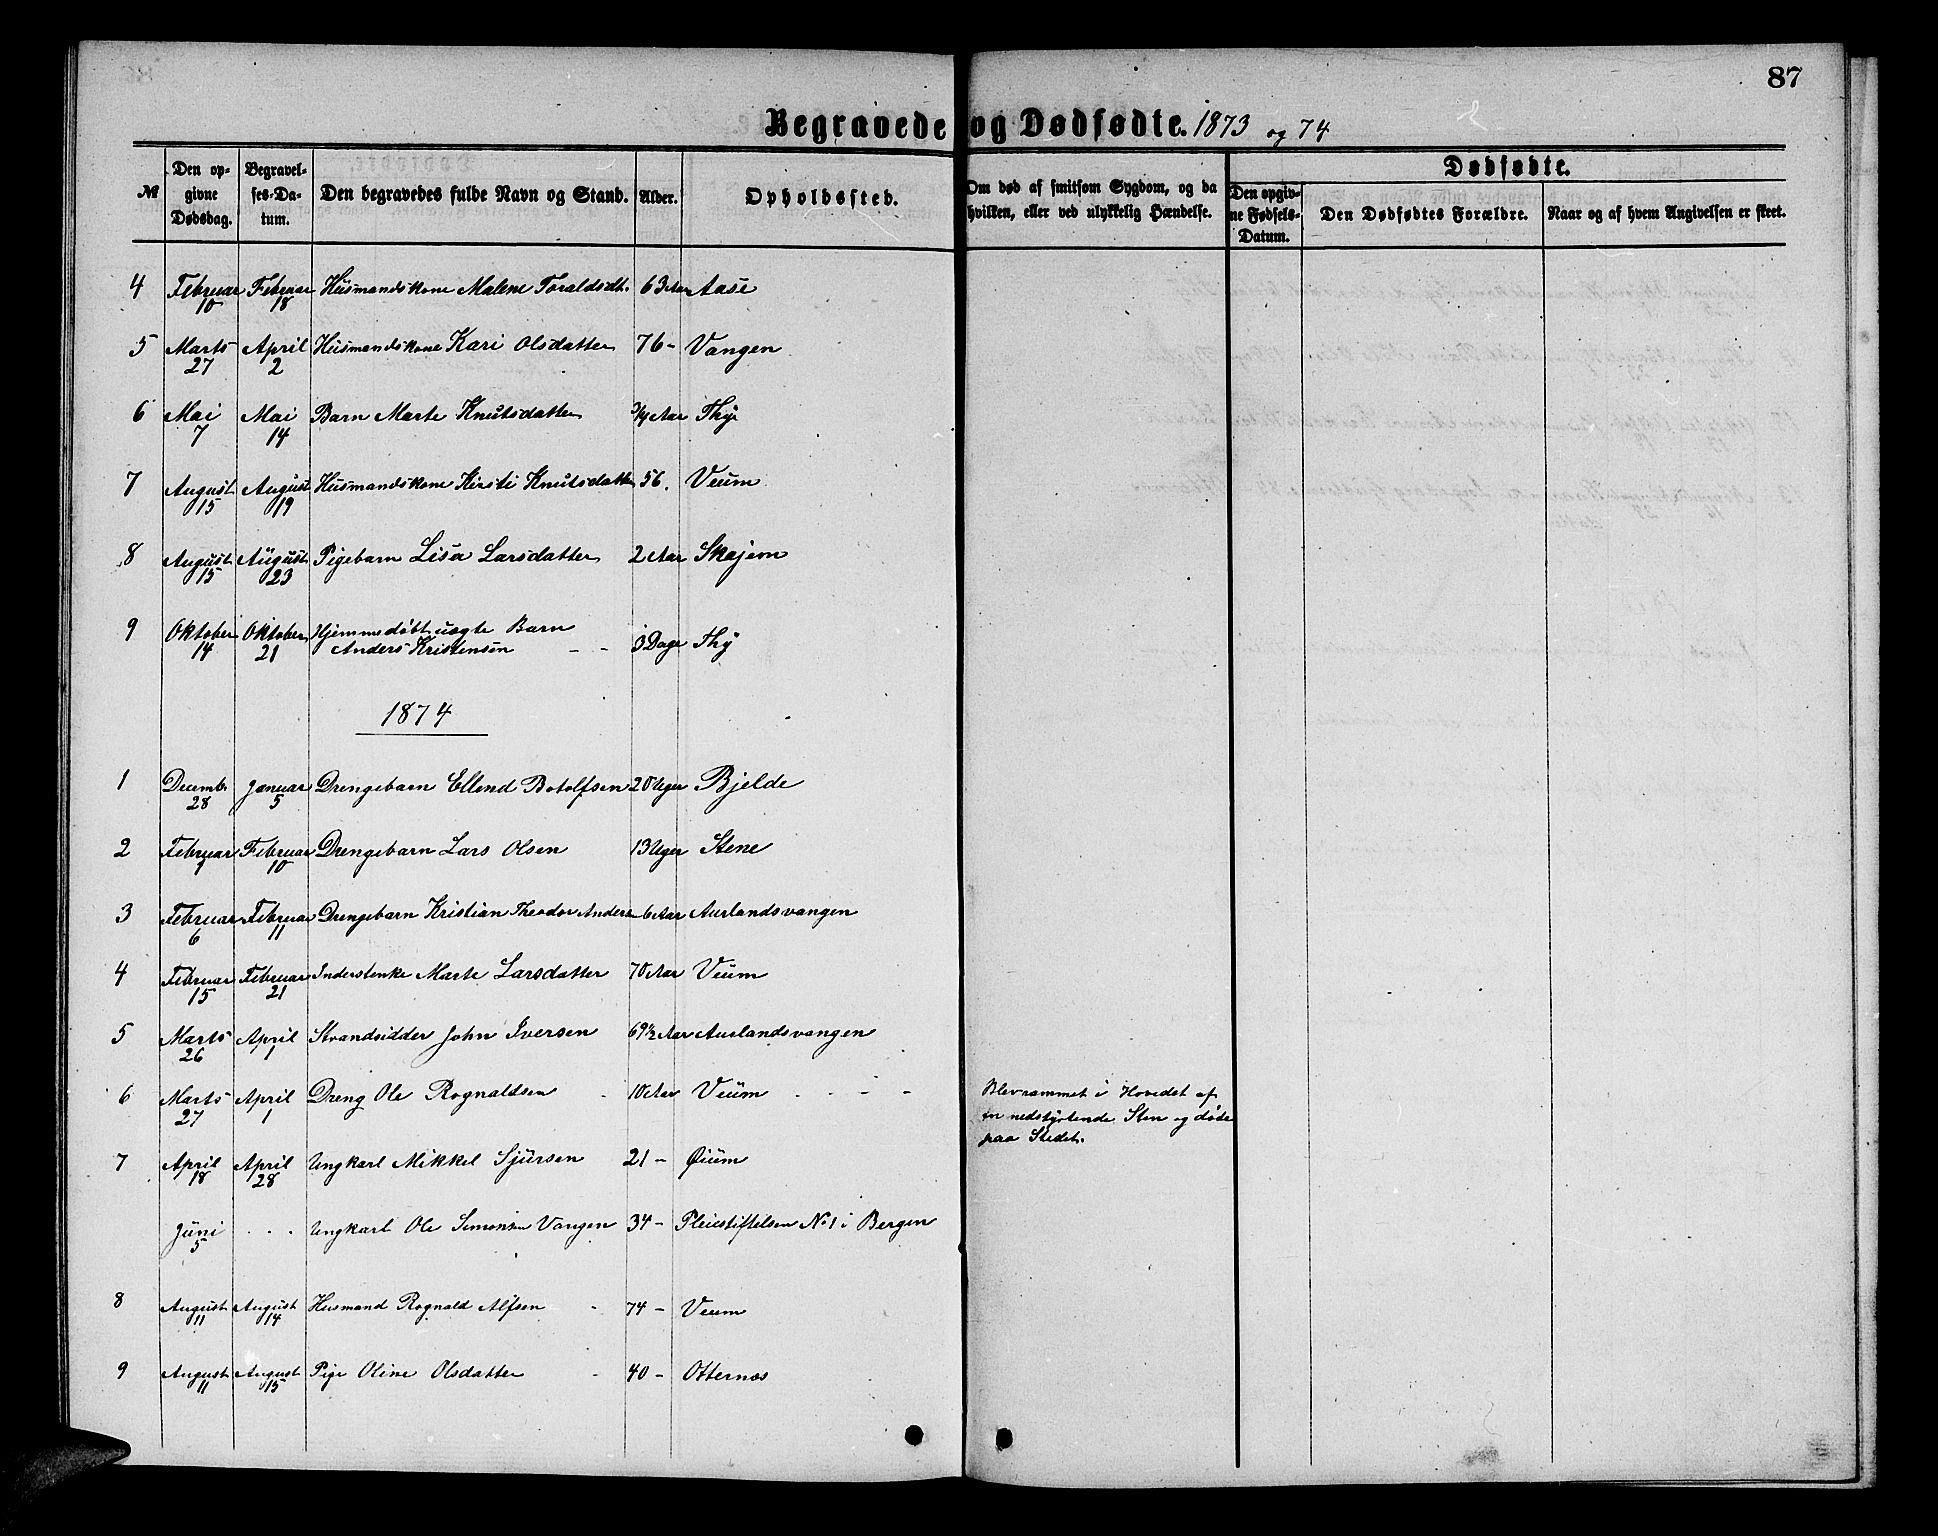 87
Begravede og Dødfødte. 1873 og 74
Dødfødte.
№
Den opgivne Dødsdag.
Begravelses-Datum.
Den begravedes fulde Navn og Stand.
Alder.
Opholdssted.
Om død af smitsom Sygdom, og da hvilken, eller ved ulykkelig Hændelse.
Den opgivne Fødsels-Datum.
Den Dødfødtes Forældre.
Naar og af hvem Angivelsen er skeet.
4 Februar 10 Februar 18 Husmandskone Malene Toraldsdt. 63 Aar Aase
5 Marts 27 April 2 Husmandskone Kari Olsdatter 76 - Vangen
6 Mai 7 Mai 14 Barn Marte Knutsdatter 3/4 Aar Thy
7 August 15 August 19 Husmandskone Kirsti Knutsdatter 56. Veum
8 August 15 August 23 Pigebarn Lisa Larsdatter 2 Aar Skajem
9 Oktober 14 Oktober 21 Hjemmedøbt uægte Barn
Anders Kristensen - - 3 Dage Thy
1874
1 Decemb. 28 Januar 5 Drengebarn Ellend Botolfsen 20 Uger Bjelde
2 Februar Februar 10 Drengebarn Lars Olsen 13 Uger Stene
3 Februar 6 Februar 11 Drengebarn Kristian Theodor Anders 6 Aar Aurlandsvangen
4 Februar 15 Februar 21 Inderstenke Marte Larsdatter 70 Aar Veum
5 Marts 26 April 1 Strandsidder John Iversen 69 1/2 Aar Aurlandsvangen
6 Marts 27 April 1 Dreng Ole Rognaldsen - 10 Aar Veum - - - - Blev rammet i Hovedet af
en nedstyrtende Sten og døde
paa Stedet.
7 April 18 April 28 Ungkarl Mikkel Sjursen 21 - Øium
Juni 5 - - - Ungkarl Ole Simonsen Vangen 34 - Pleiestiftelsen No 1 i Bergen
8 August 11 August 14 Husmand Rognald Alfsen - 74 - Veum
9 August 11 August 15 Pige Oline Olsdatter - 40 - Otternæs